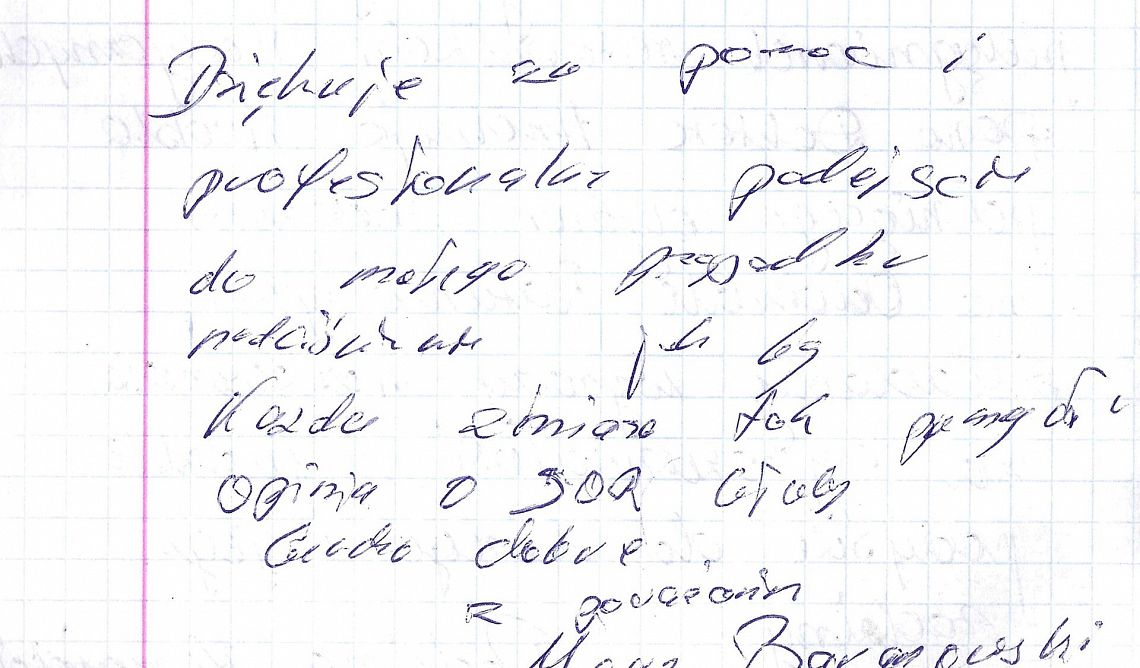 Dziękuję za pomoc i
profesjonalne podejście
do mojego przypadku
jak by
Każda zmiana tak
Opinia o SOR była by
bardzo dobre
z poważaniem
Baranowski